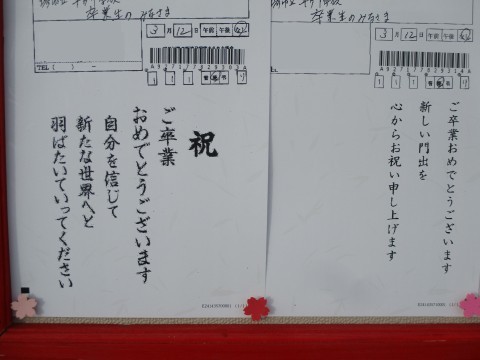 卒業生のみなさま
3月12日 午前 午後
TEL( ) -
祝
ご卒業
おめでとうございます
自分を信じて
新たな世界へと
羽ばたいていってください
卒業生のみなさま
3月12日 午前 午後
ご卒業おめでとうございます
新しい門出を
心からお祝い申し上げます